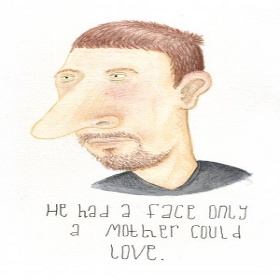 He had a face only
a Mother could
love.